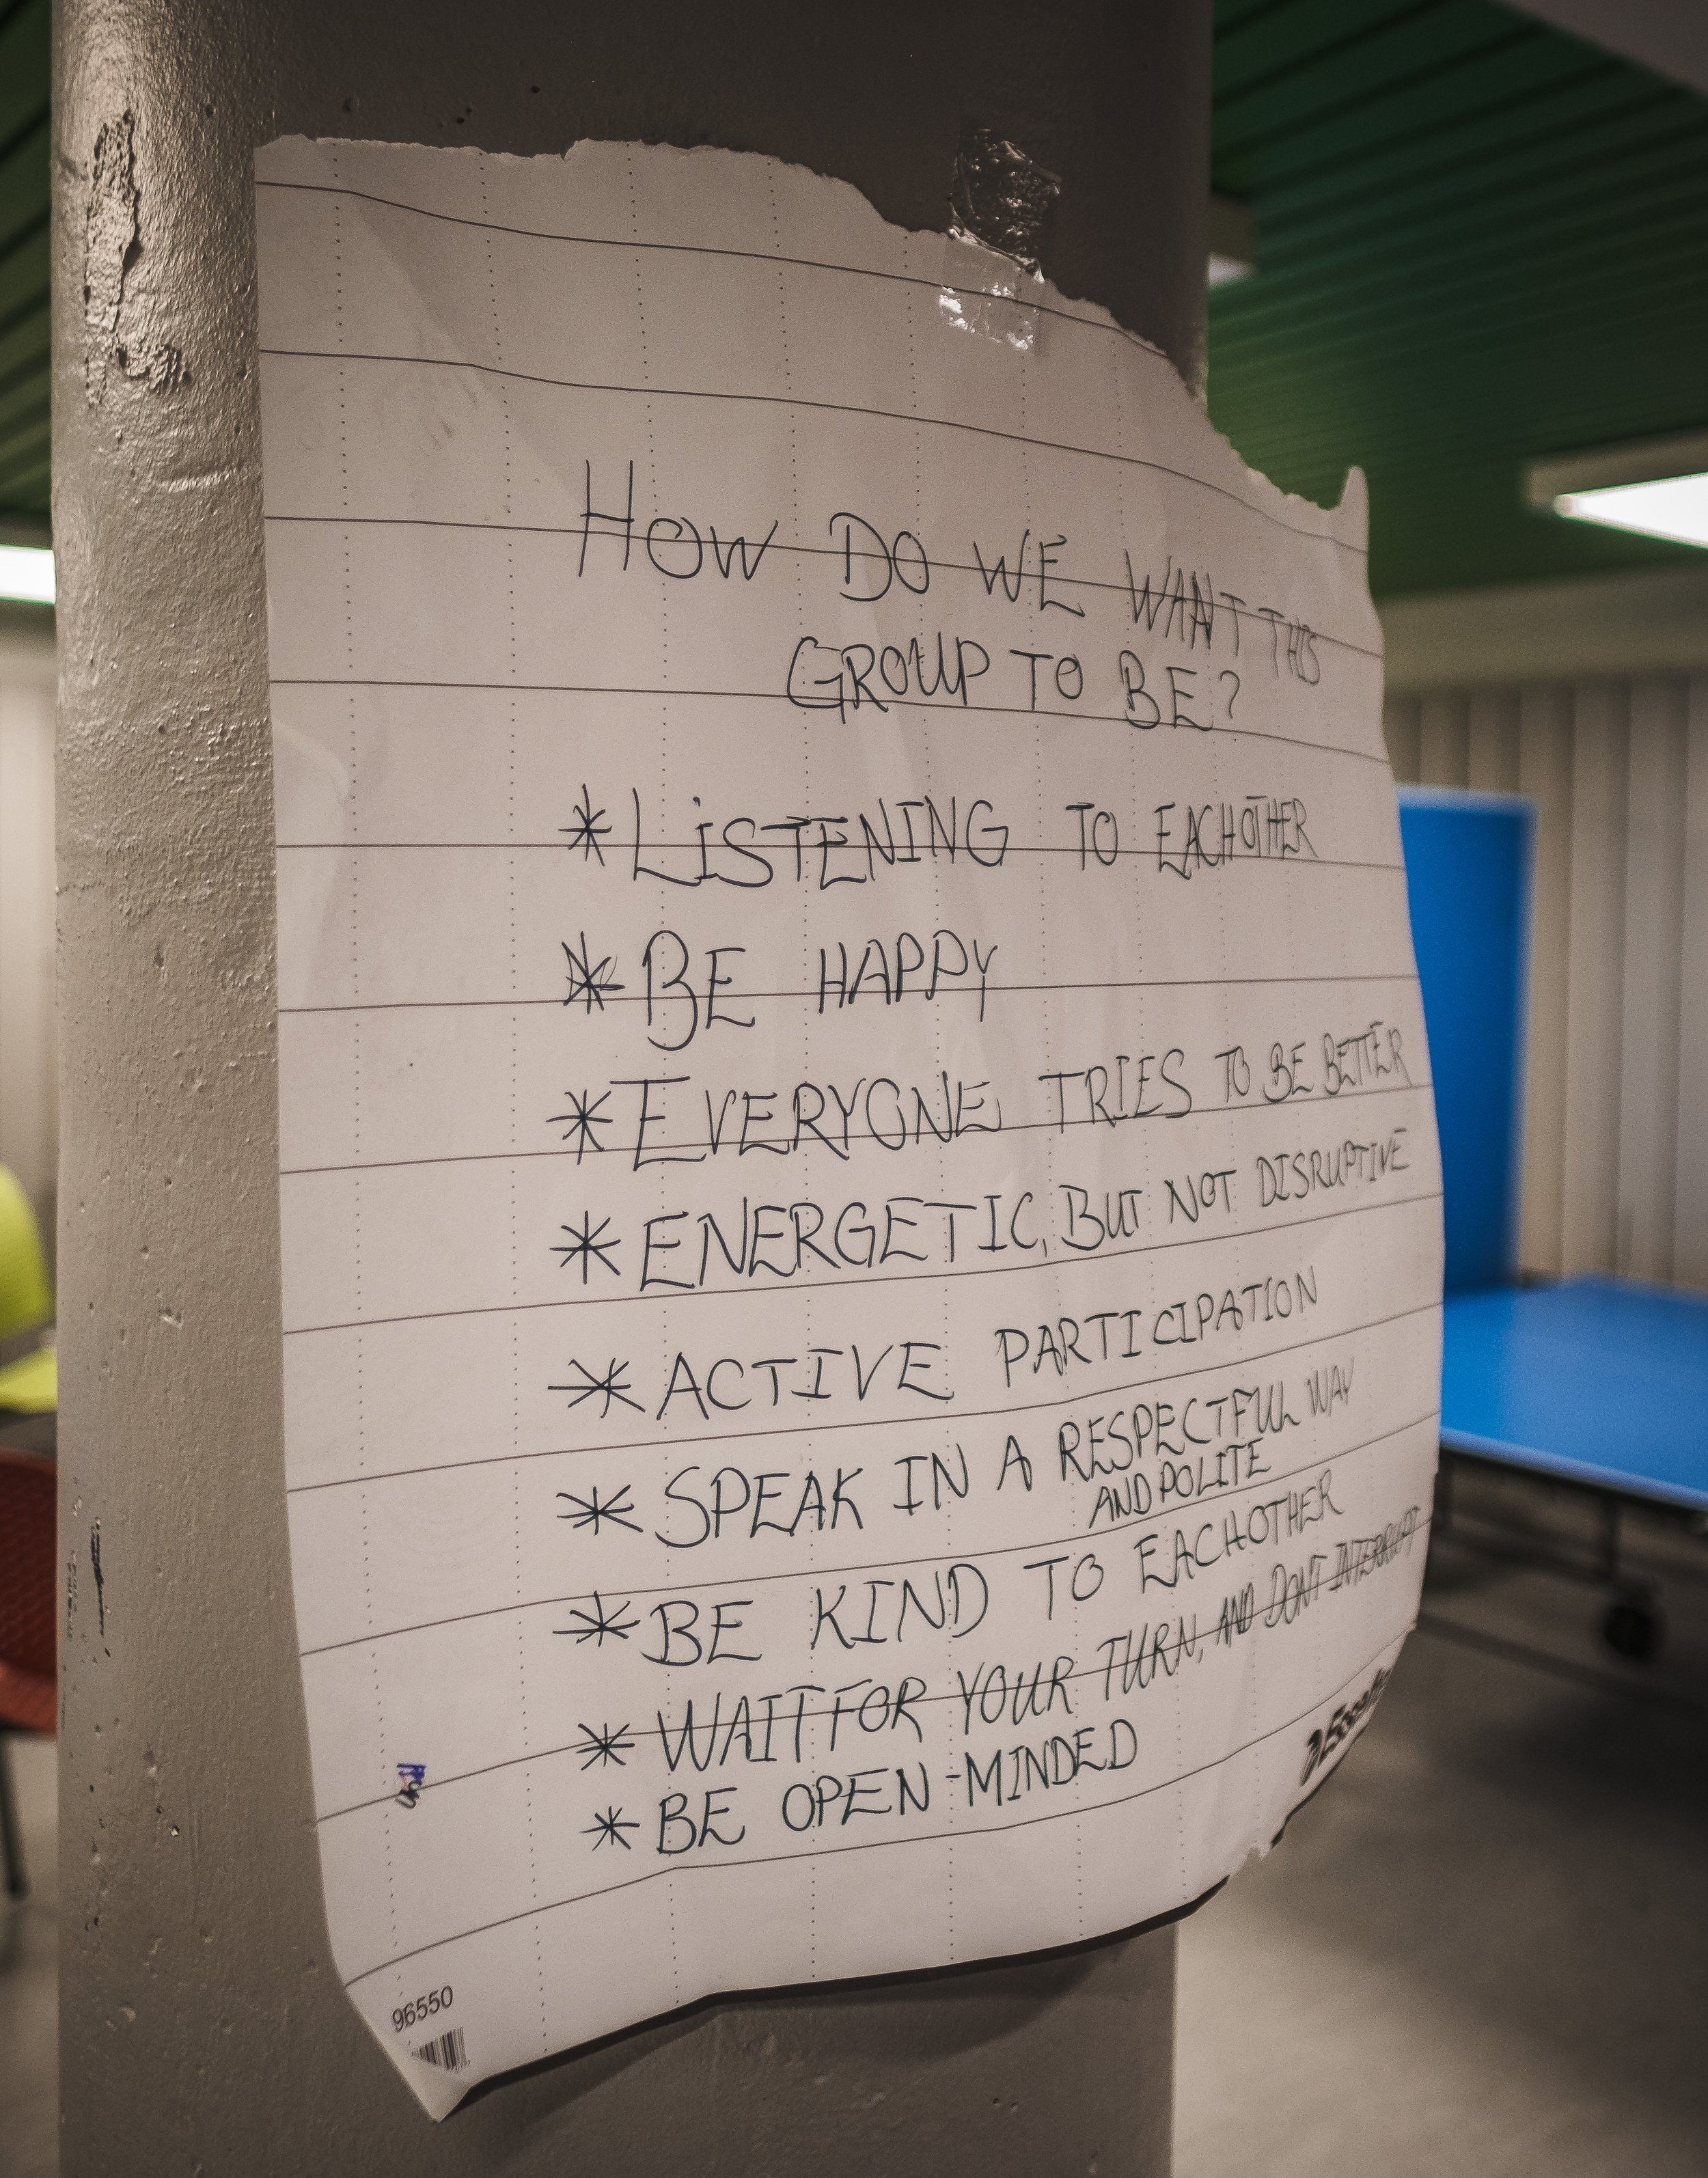 HOW DO WE WANT THIS
GROUP TO BE?
* LiSTENING TO EACHOTHER
* BE HAPPY
* EVERYONE TRIES TO BE BETTER
* ENERGETIC, BUT NOT DISRUPTIVE
* ACTIVE PARTICIPATION
* SPEAK IN A RESPECTFUL WAY
AND POLITE
* BE KIND TO EACHOTHER
* WAIT FOR YOUR TURN, AND DONT INTERRUPT
* BE OPEN-MINDED
96550